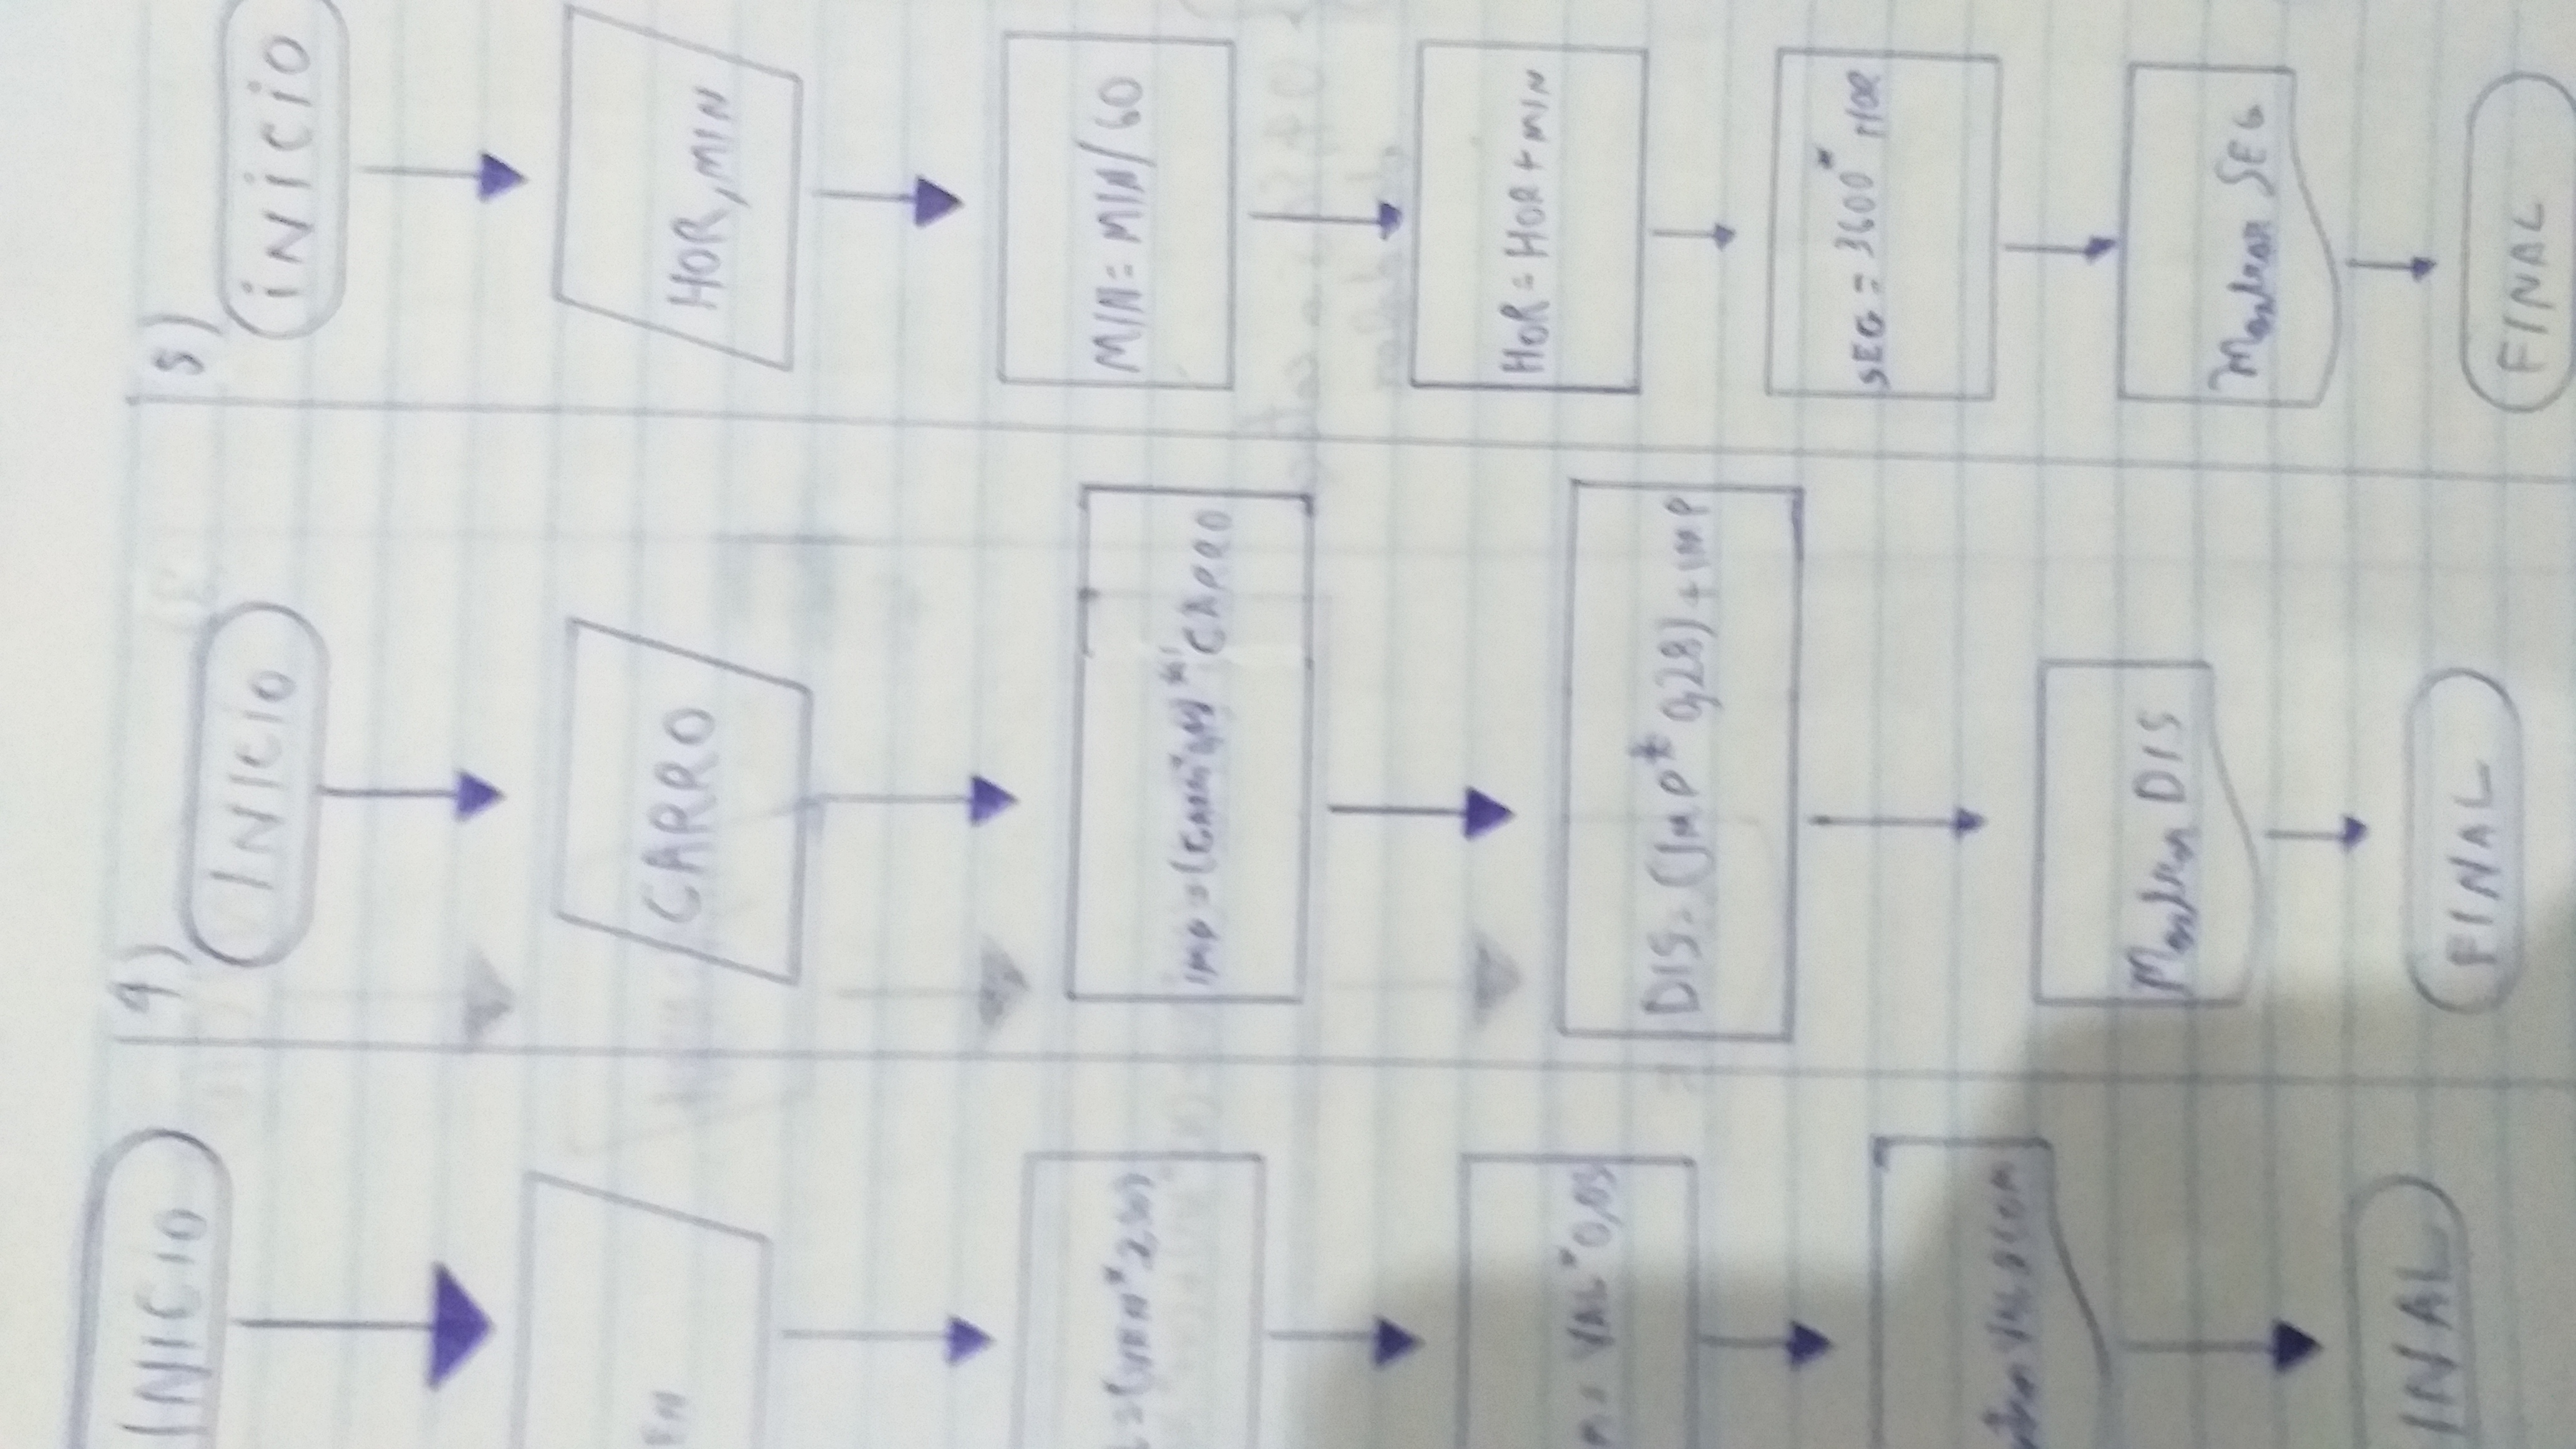 INICIO
EN
=(VEN*2,50)
= VAL*0,05
INAL
4)
INICIO
CARRO
CARRO
DIS= (IMP* 0,28) + IMP
Mostrar DIS
FINAL
5)
iNiCiO
HOR, MIN
MIN= MIN/60
HOR = HOR + MIN
SEG = 3600* HOR
Mostrar SEG
FINAL